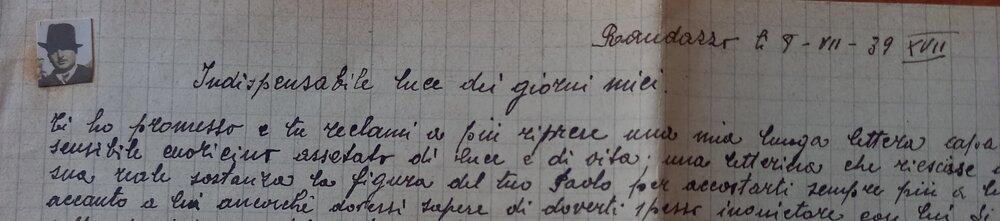 Randazzo li 8 - VII - 39 XVII
Indispensabile luce dei giorni miei.
Ti ho promesso e tu reclami a più riprese una mia lunga lettera capa
sensibile cuoricino assetato di luce e di vita; una letterina che riescisse
sua reale sostanza la figura del tuo Paolo per accostarti sempre più a
accanto a lui ancorché dovessi sapere di doverti spesso inquietare con lui